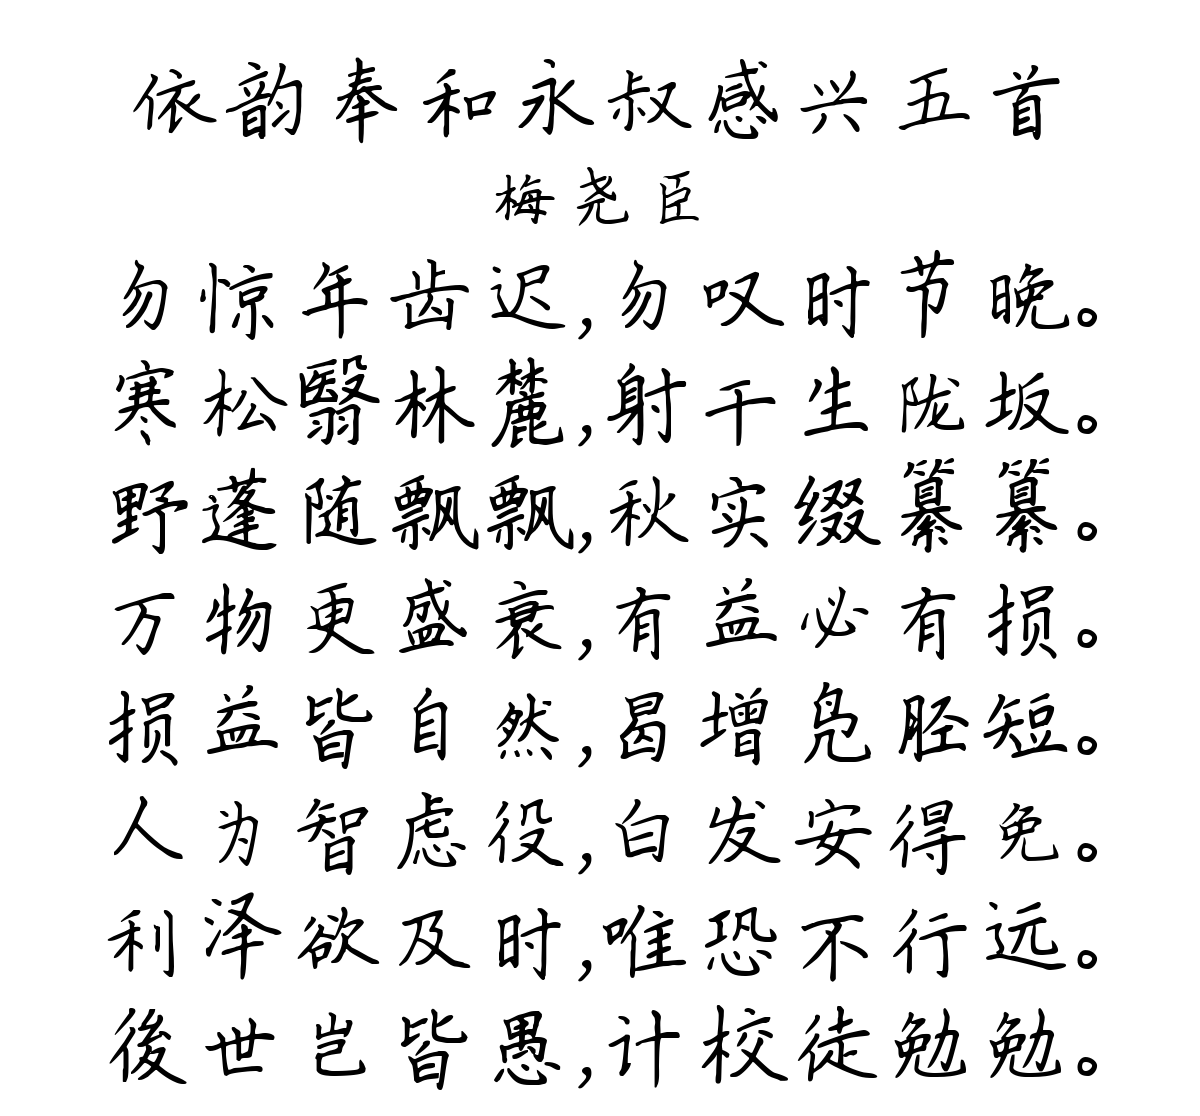 依韵奉和永叔感兴五首
梅尧臣
勿惊年齿迟,勿叹时节晚。
寒松翳林麓,射干生陇坂。
野蓬随飘飘,秋实缀纂纂。
万物更盛衰,有益必有损。
损益皆自然,曷增凫胫短。
人为智虑役,白发安得免。
利泽欲及时,唯恐不行远。
後世岂皆愚,计校徒勉勉。